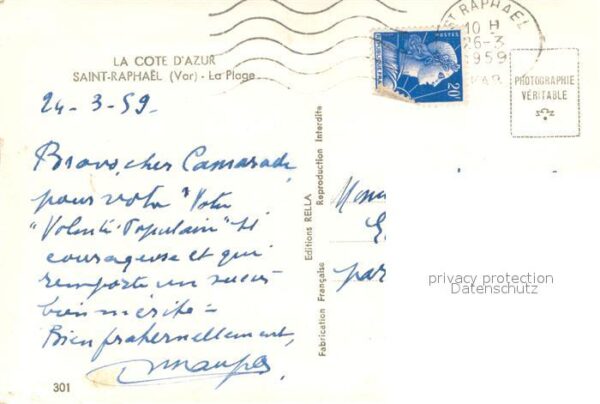 LA COTE D'AZUR
SAINT-RAPHAËL (Var) - La Plage
ST RAPHAEL
10 H
26-3
1959
VAR
POSTES
20F
PHOTOGRAPHIE
VÉRITABLE
24-3-59.
Bravo, cher Camarade,
pour votre "Votre
"Volonté Populaire" si
courageuse et qui
remporte un succès
bien mérité =
Bien fraternellement,
Fabrication Française Editions RELLA Reproduction Interdite
par
privacy protection
Datenschutz
301